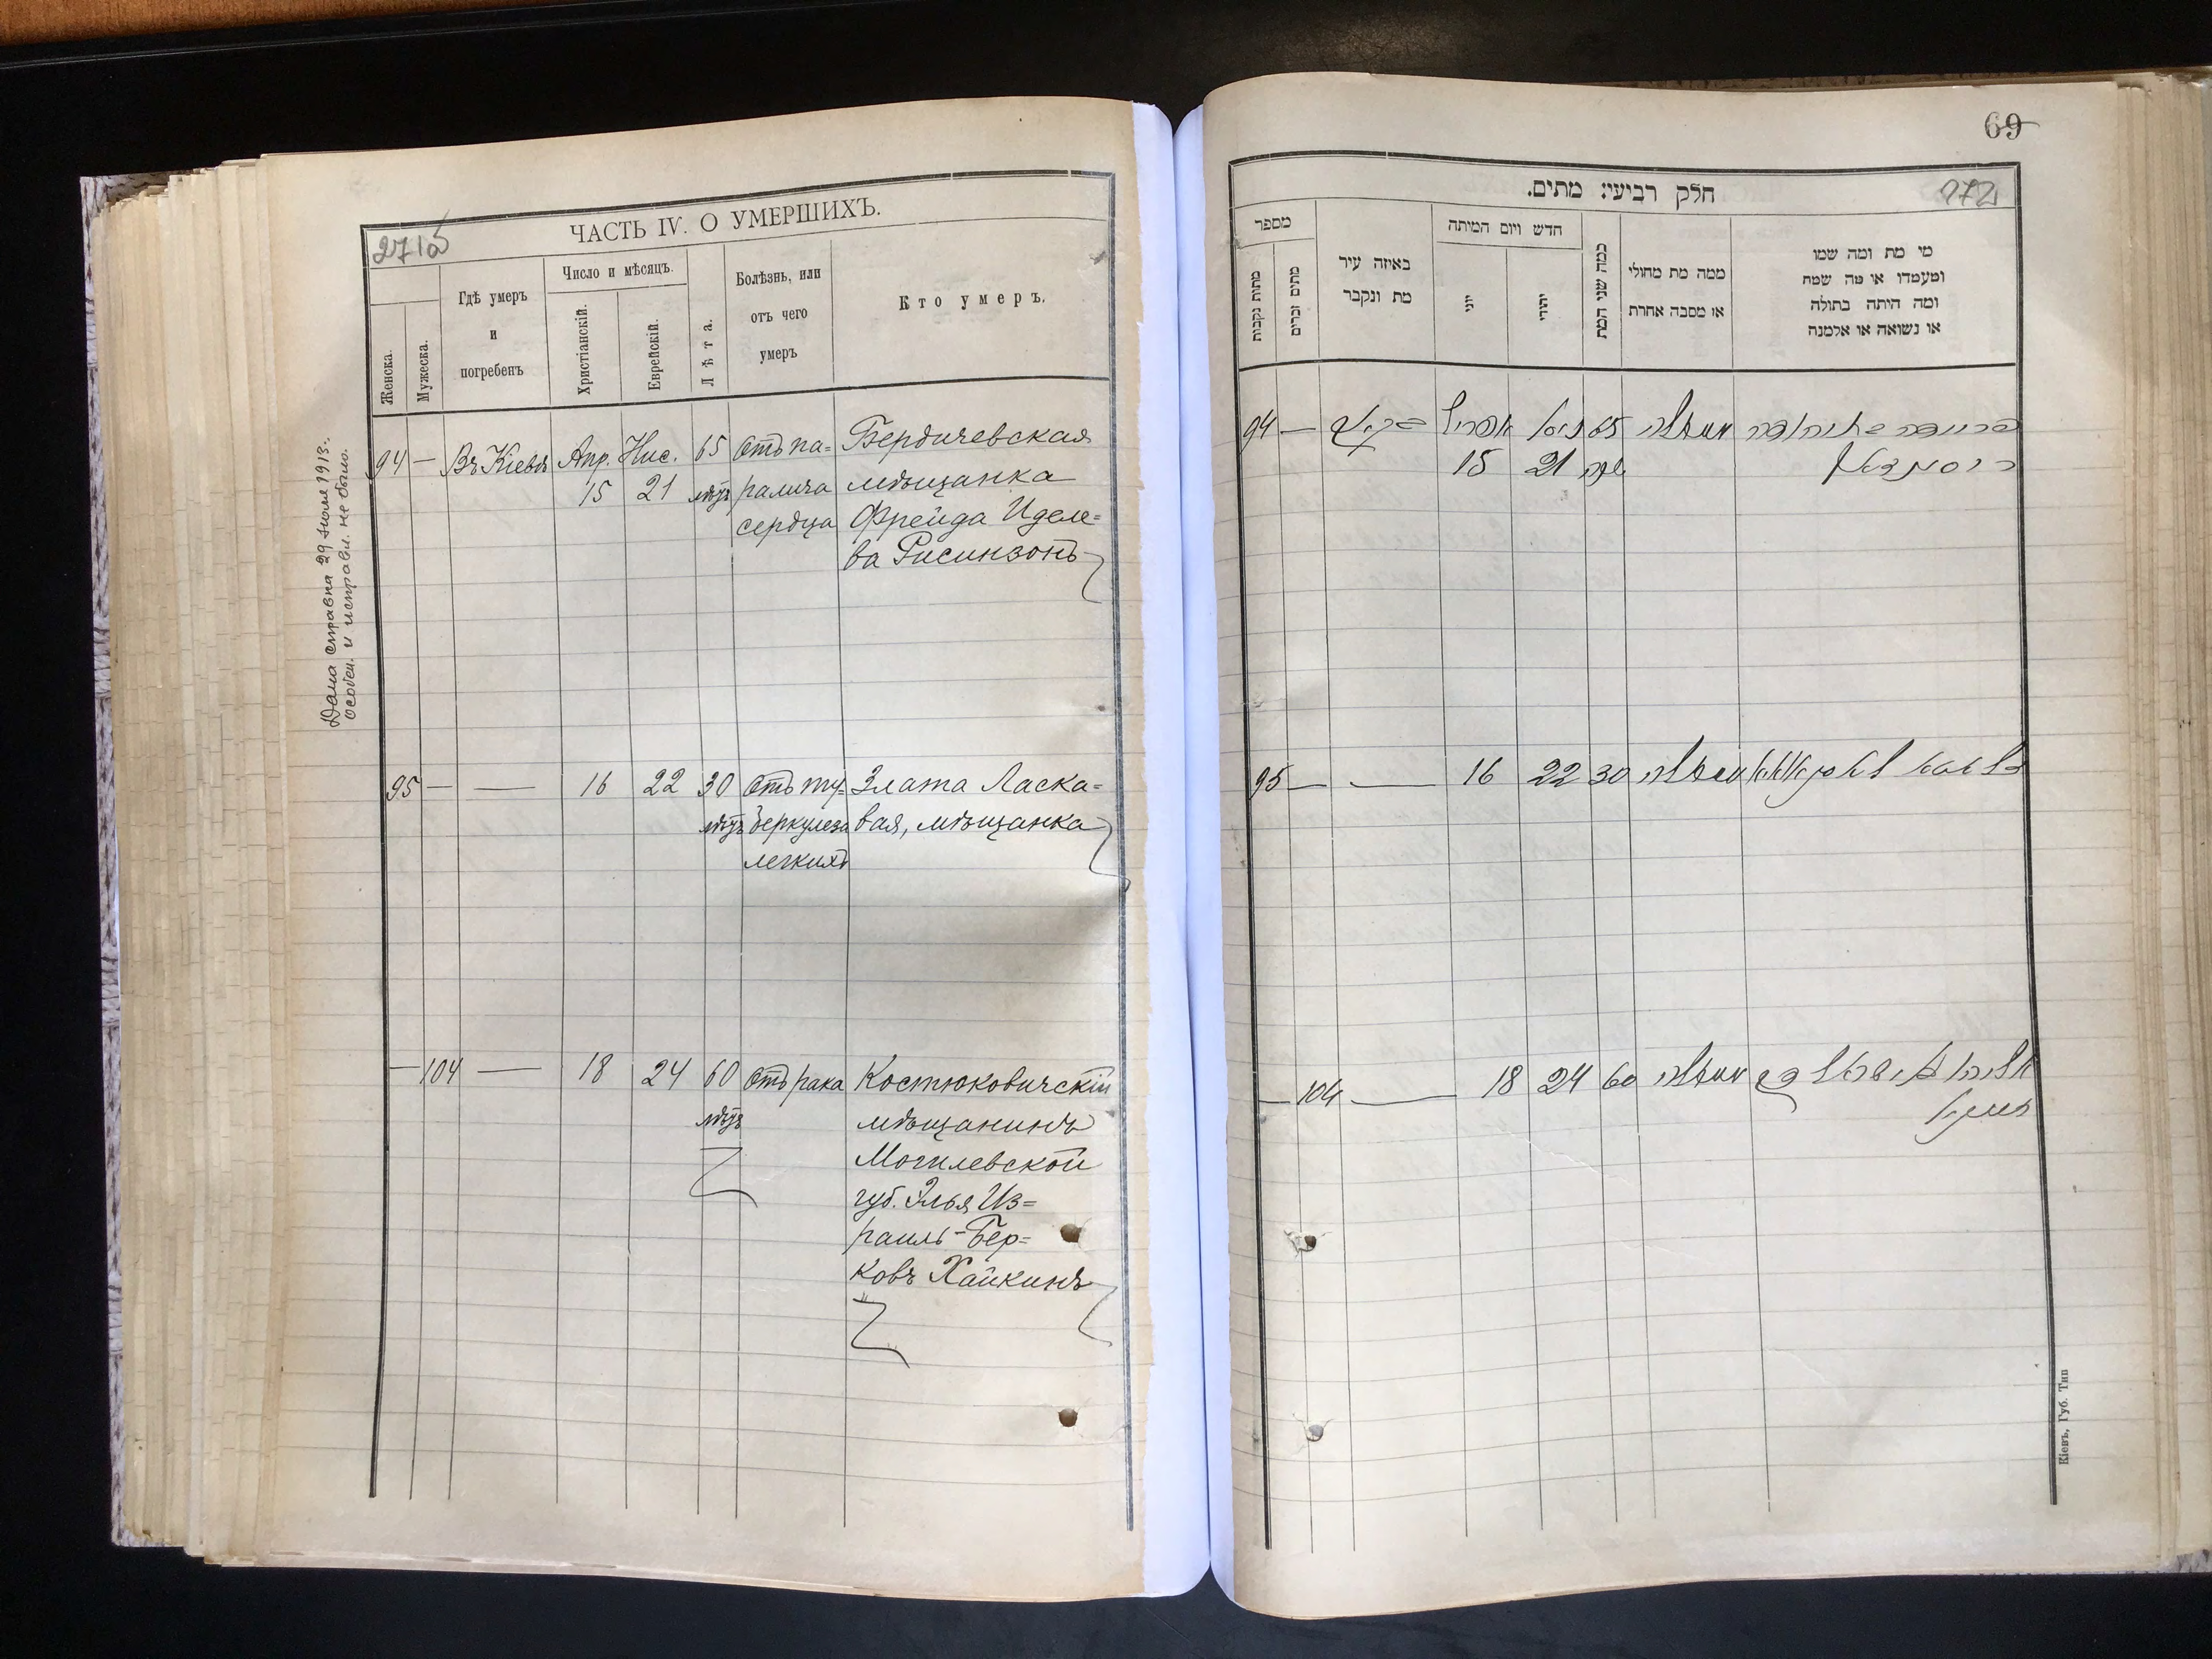 271б
ЧАСТЬ IV. О УМЕРШИХЪ.
Женска.
Мужеска.
Гдѣ умеръ
и
погребенъ
Число и мѣсяцъ.
Христіанскій.
Еврейскій.
Лѣта.
Болѣзнь, или
отъ чего
умеръ
Кто умеръ.
Дана справка 29 июля 1913.
Особен. и исправл. не было.
94 — Въ Кіевѣ Апр. Нис. 65 Отъ па= Бердичевская
15 21 лѣтъ ралича мѣщанка
сердца Фрейда Иделе=
ва Рисинзонъ
95 — — 16 22 30 Отъ ту= Злата Ласка=
лѣтъ беркулеза вая, мѣщанка
легкихъ
— 104 — 18 24 60 Отъ рака Костюковичскій
лѣтъ мѣщанинъ
Могилевской
губ. Элья Из=
раиль-Бер=
ковъ Хайкинъ
69
272
חלק רביעי: מתים.
מספר
מתות נקבות
מתים זכרים
באיזה עיר
מת ונקבר
חדש ויום המיתה
יוני
יהודי
כמה שני המת
ממה מת מחולי
או מסבה אחרת
מי מת ומה שמו
ומעמדו או מה שמת
ומה היתה בתולה
או נשואה או אלמנה
94 — אפריל ניסן 65
15 21 שנה
95 — — 16 22 30
— 104 — 18 24 60
Кіевъ, Губ. Тип